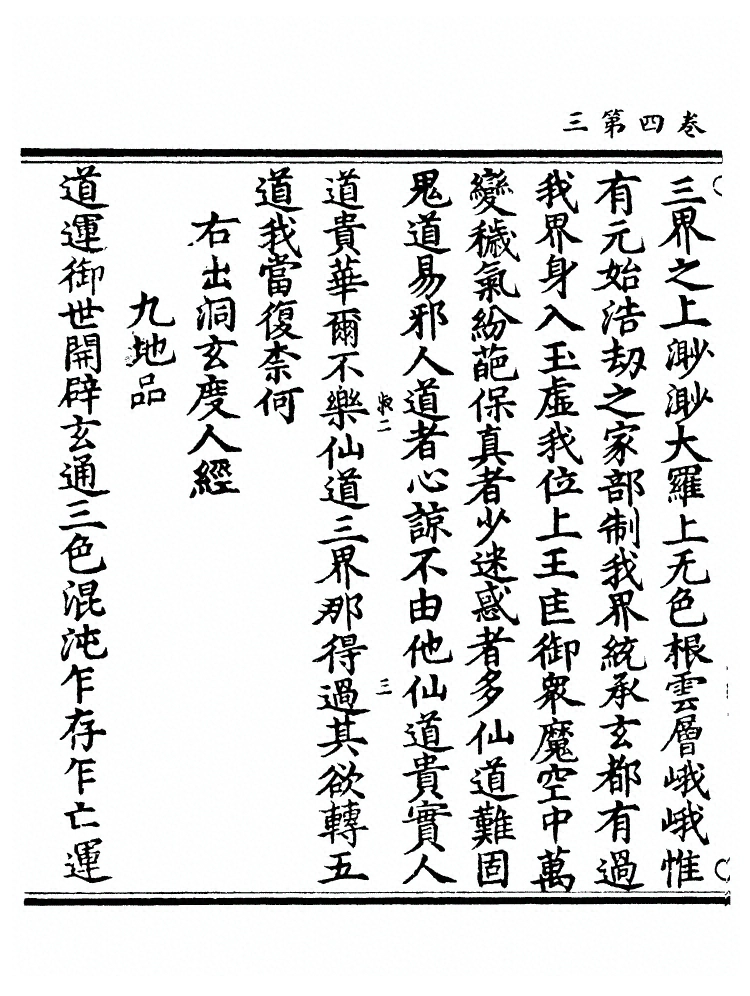 三第四卷
三界之上渺渺大羅上无色根雲層峨峨惟
有元始浩劫之家部制我界統承玄都有過
我界身入玉虛我位上王匡御衆魔空中萬
變穢氣紛葩保真者少迷惑者多仙道難固
鬼道易邪人道者心諒不由他仙道貴實人
道貴華爾不樂仙道三界那得過其欲轉五
二
三
道我當復柰何
右出洞玄度人經
九地品
道運御世開辟玄通三色混沌乍存乍亡運